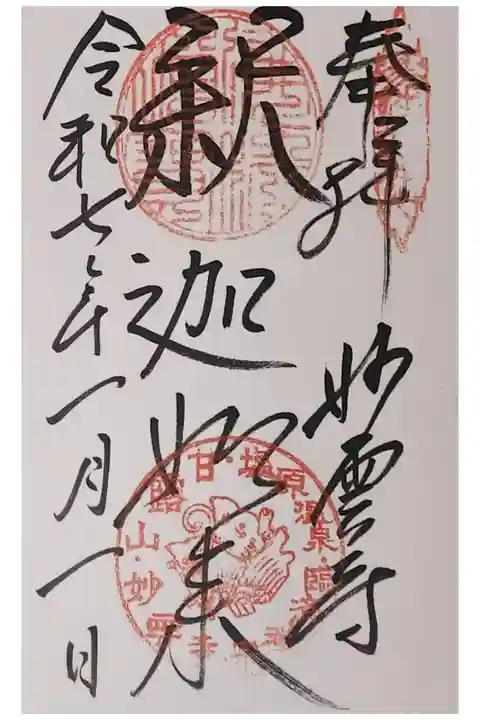 奉拝 妙雲寺
釈迦如来
令和七年一月一日
塩原温泉・臨済
甘露山・妙雲